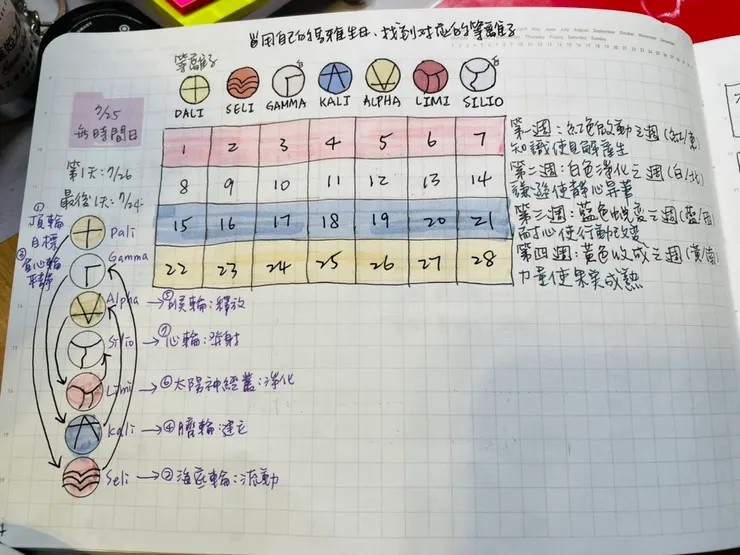 當用自己的瑪雅生日、找到对应的等離子
等離子
DALI SELI GAMMA KALI ALPHA LIMI SILIO
7/25
無時間日
第1天:7/26
最後1天:7/24
1 2 3 4 5 6 7
8 9 10 11 12 13 14
15 16 17 18 19 20 21
22 23 24 25 26 27 28
第一週:紅色啟動之週(紅/東)
知識使見解產生
第二週:白色淨化之週(白/北)
謙遜使靜心昇華
第三週:藍色蛻變之週(藍/西)
耐心使行動改變
第四週:黃色收成之週(黃/南)
力量使果実成熟
①頂輪
目標
Dali
③眉心輪
Gamma
Alpha→⑤喉輪:釋放
Silio→⑦心輪:發射
Limi→⑥太陽神經叢:淨化
Kali→④臍輪:建立
Seli→②海底輪:流動